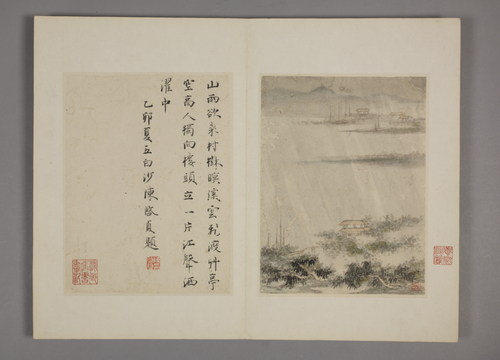 山雨欲來村樹暝溪雲渡竹亭
空高人獨向樓頭立一片江聲洒
濯中
乙卯夏五白沙陳啟貞題